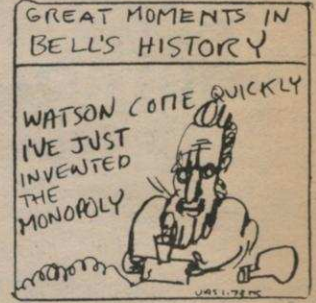 GREAT MOMENTS IN
BELL'S HISTORY
WATSON COME QUICKLY
I'VE JUST
INVENTED
THE
MONOPOLY